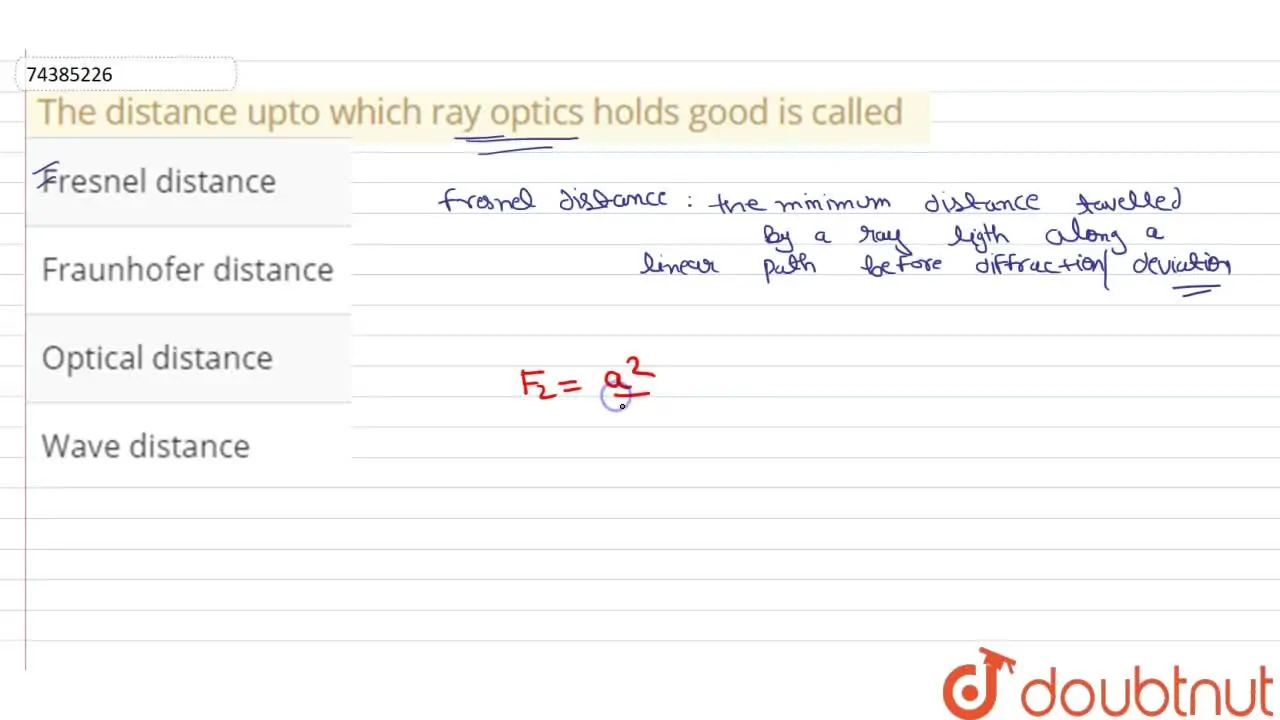 74385226
The distance upto which ray optics holds good is called
Fresnel distance
Fraunhofer distance
Optical distance
Wave distance
fresnel distance : the minimum distance tavelled
by a ray ligth along a
linear path before diffraction/ deviation
F2 = a2
doubtnut